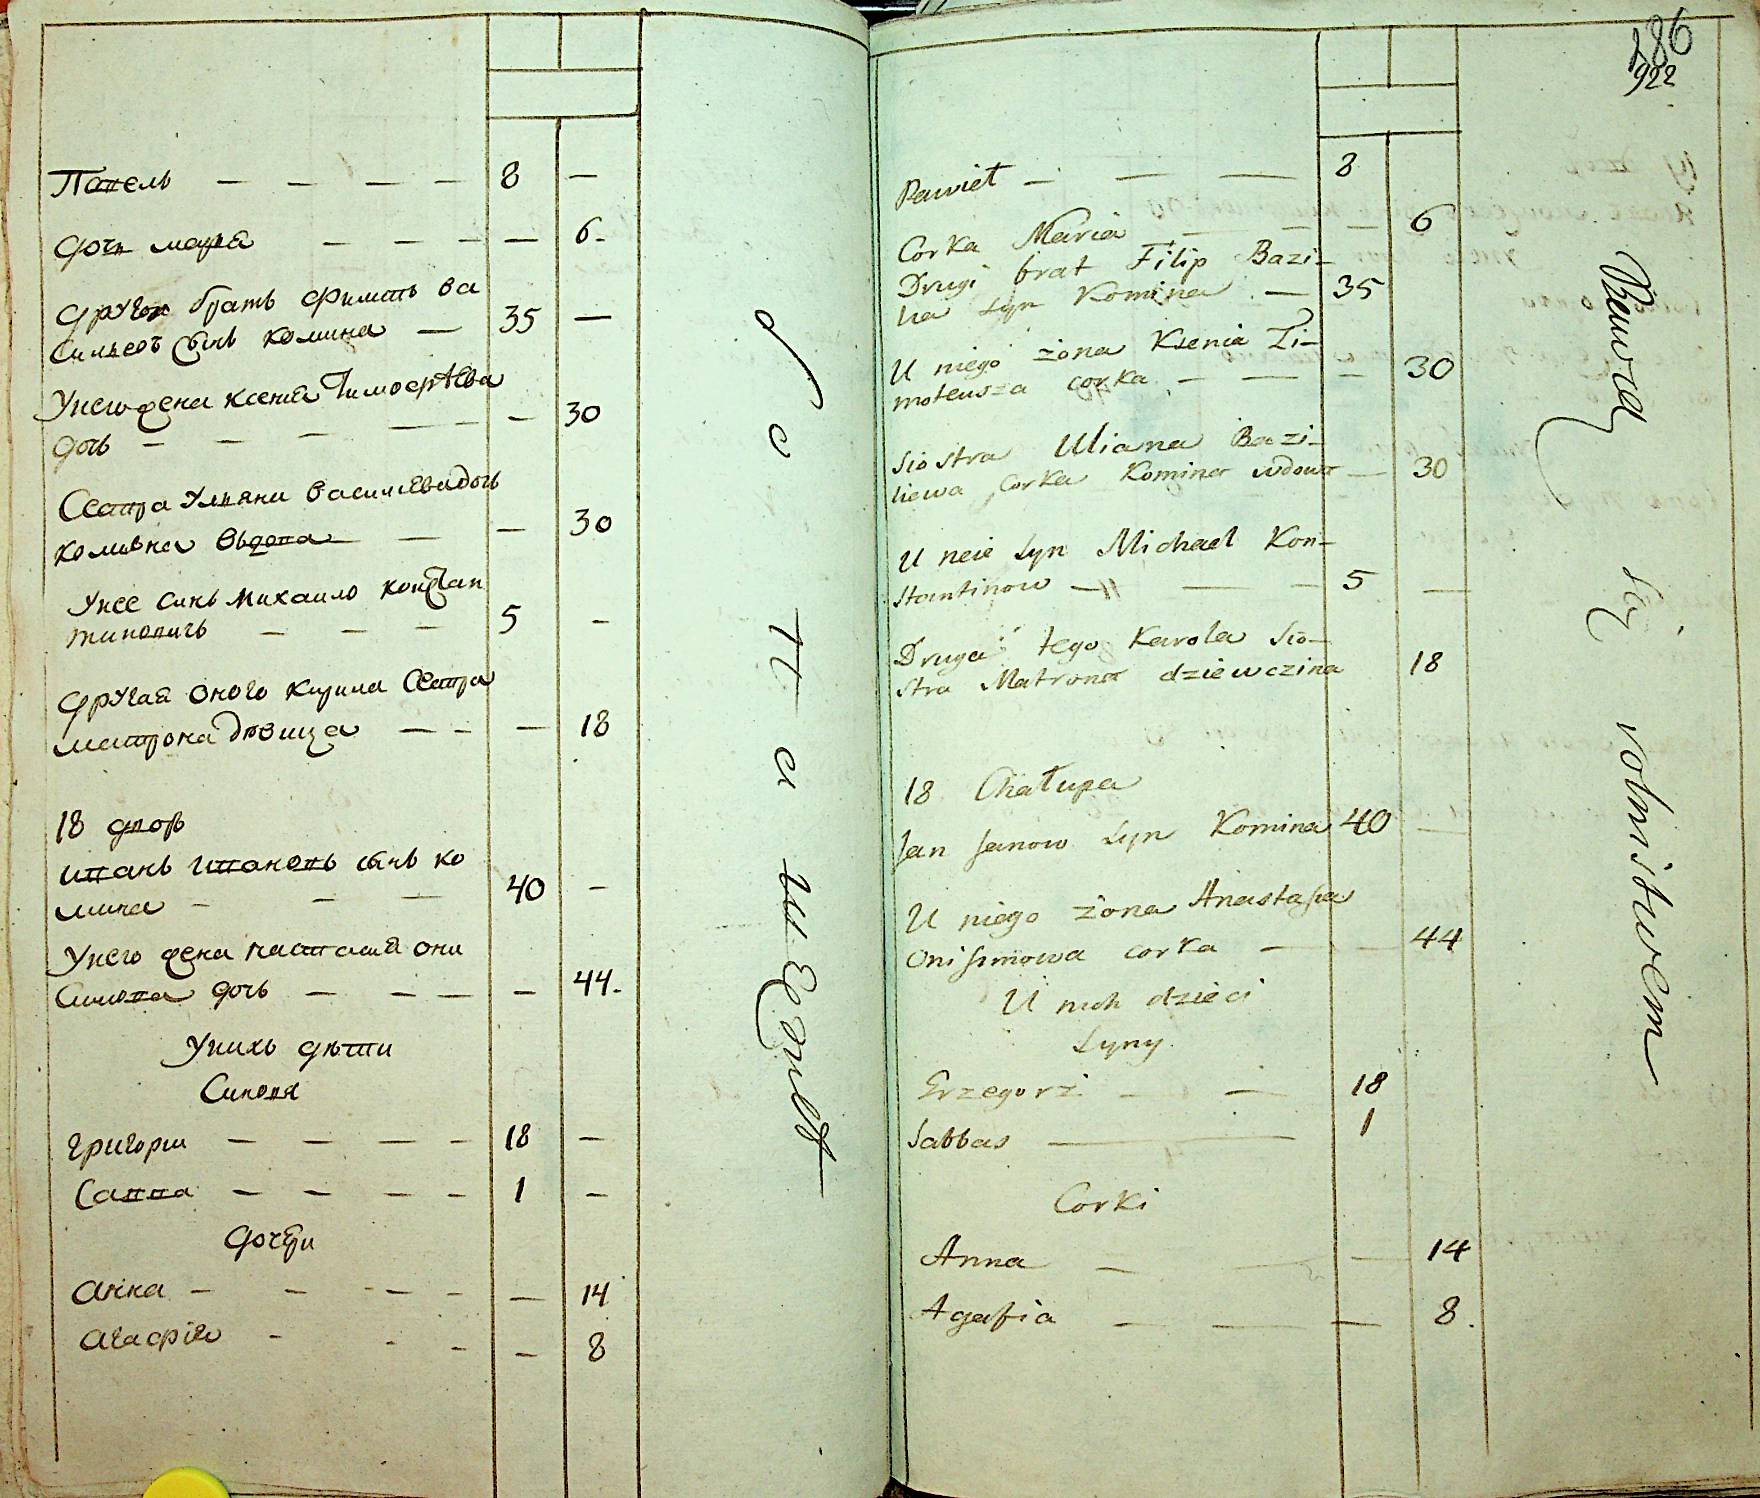 Павель — — — — 8 —
дочь марія — — — — 6
другой братъ Филипъ ва
сильевъ сынъ комина — 35 —
Унего жена ксенія Тимоѳѣева
дочь — — — — — 30
Сестра Ульяна васильѣва дочь
комина вьдова — — 30
Унее синь Михаило констан
тиновичь — — — 5 —
другая оного кирила Сестра
матрона дѣвица — — — 18
18 дворъ
иванъ ивановъ сынъ ко
мина — — — 40 —
Унего жена настасия они
симова дочь — — — — 44
Унихъ дѣти
Синовя
григории — — — — 18 —
Савва — — — — 1 —
дочери
анна — — — — — 14
агафія — — — — 8
186
922
Paweł — — — 8
Corka Maria — — — 6
Drugi brat Filip Bazi-
lia Syn Komina — 35
U niego żona Ksenia Ti-
moteusza corka — — — 30
Siostra Uliana Bazi-
liewa Corka Komina wdowa — 30
U neie Syn Michael Kon-
stantinow — — — 5 —
Druga tego Karola Sio-
stra Matrona dziewczina 18
18 Chałupa
Jan Janow Syn Komina 40 —
U niego żona Anastasia
Onisimowa corka — — 44
U nich dzieci
Syny
Grzegorz — — 18
Sabbas — 1
Corki
Anna — — — 14
Agafia — — — 8
Bawią się rolnistwem